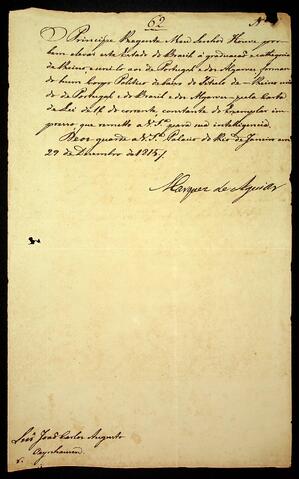 6ª
Nº
O Principe Regente Meu Senhor Houve por
bem elevar este Estado do Brazil á graduação e categoria
de Reino, e uni-lo aos de Portugal e dos Algarves, formando
hum Corpo Politico debaixo do Titulo de Reino uni-
do de Portugal e do Brazil e dos Algarves pela Carta
de Lei de 16 do corrente, constante do Exemplar im-
presso que remetto a V. Sª para sua intelligencia.
Deos guarde a V. Sª Palacio do Rio de Janeiro em
29 de Dezembro de 1815
Marquez de Aguiar
João Carlos Augusto
Oeynhausen